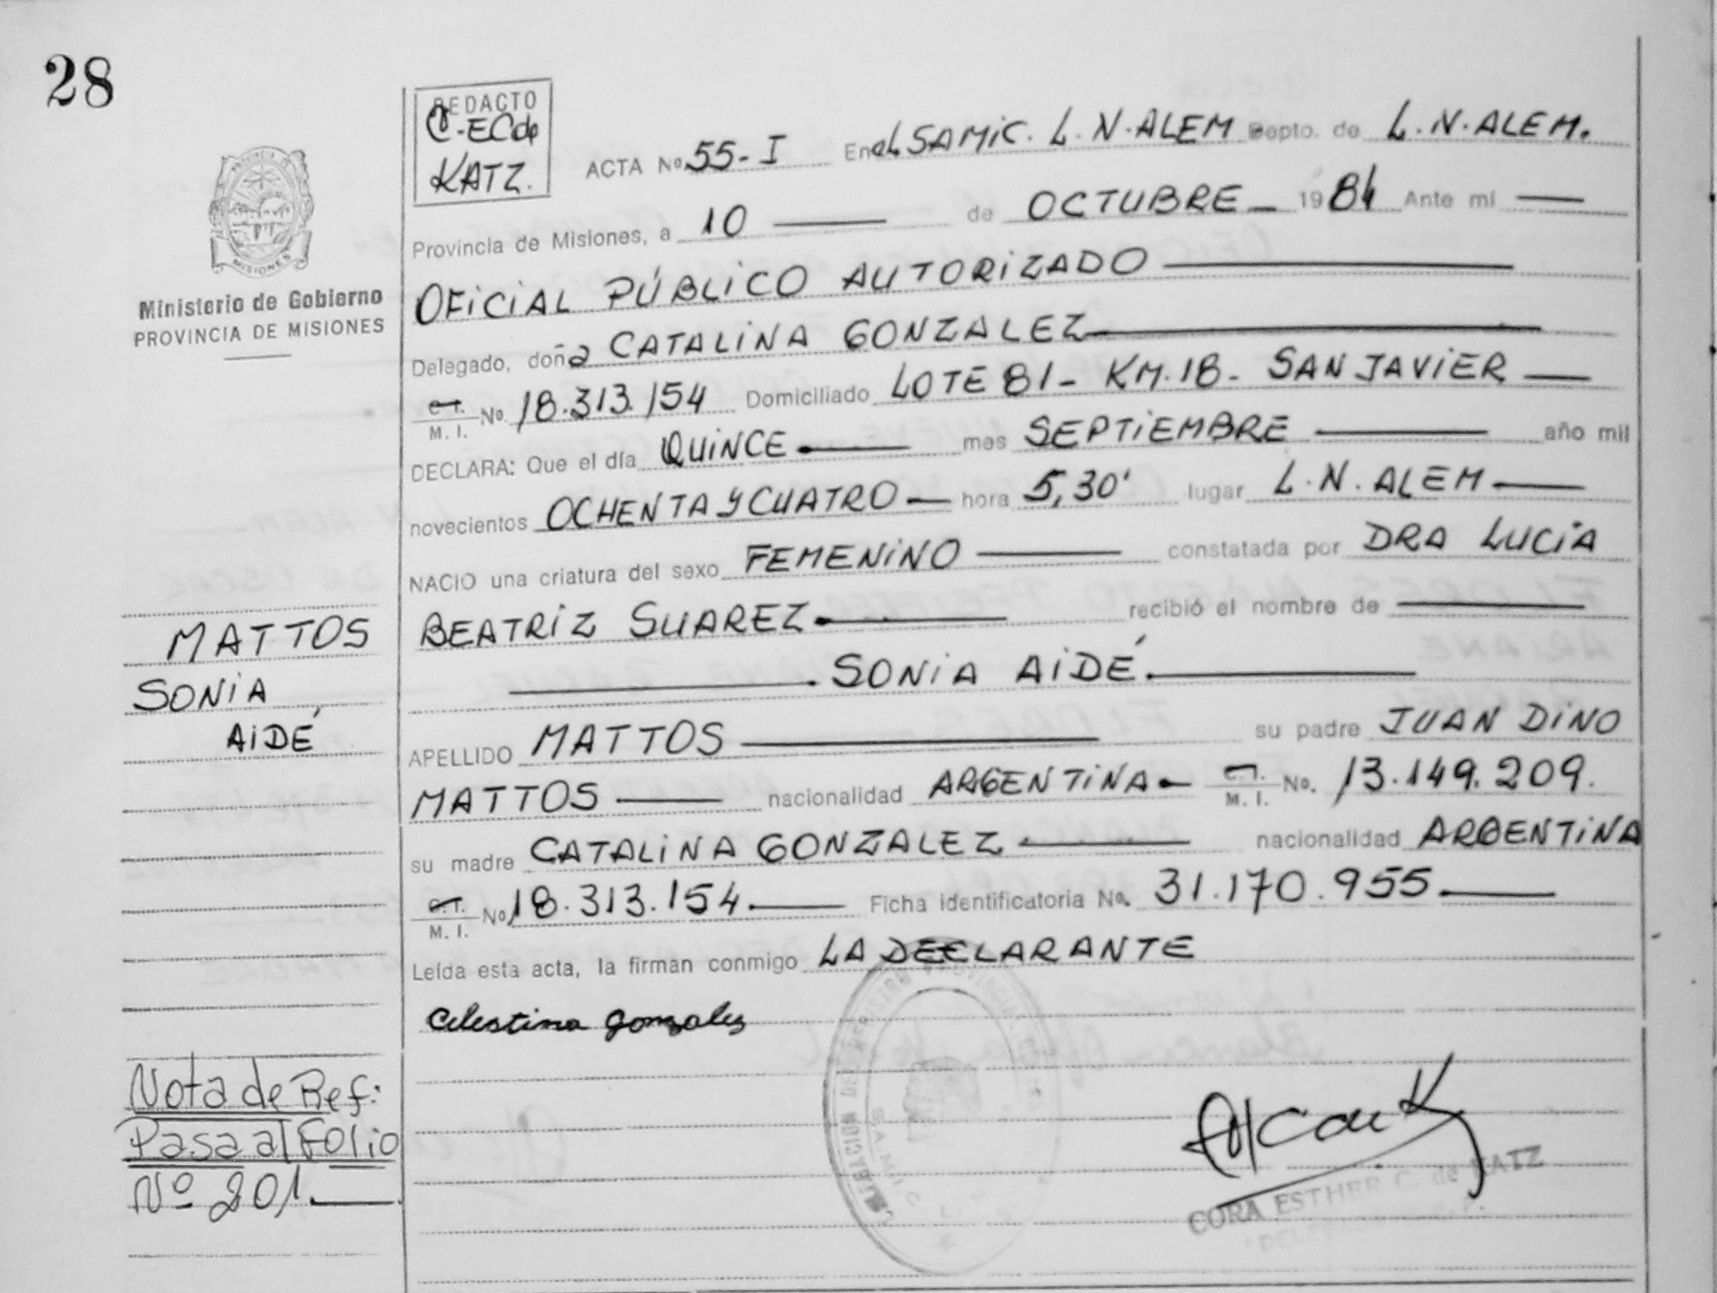 28
REDACTO
C.EC de
KATZ.
ACTA Nº 55-I En el SAMIC. L. N. ALEM Depto. de L.N.ALEM.
Provincia de Misiones, a 10 de OCTUBRE 1984 Ante mi
OFICIAL PÚBLICO AUTORIZADO
Delegado, doña CATALINA GONZALEZ
C.I. M.I. No. 18.313.154 Domiciliado LOTE 81- KM.18- SAN JAVIER
DECLARA: Que el día QUINCE mes SEPTIEMBRE año mil
novecientos OCHENTA Y CUATRO hora 5,30' lugar L.N. ALEM
NACIO una criatura del sexo FEMENINO constatada por DRA LUCIA
BEATRIZ SUAREZ recibió el nombre de
SONIA AIDÉ.
APELLIDO MATTOS su padre JUAN DINO
MATTOS nacionalidad ARGENTINA C.I. M.I. No. 13.149.209.
su madre CATALINA GONZALEZ nacionalidad ARGENTINA
C.I. M.I. No. 18.313.154. Ficha identificatoria No. 31.170.955
Leída esta acta, la firman conmigo LA DEECLARANTE
Celestina Gonzalez
CORA ESTHER C. de KATZ
PROVINCIA DE
MISIONES
Ministerio de Gobierno
PROVINCIA DE MISIONES
MATTOS
SONIA
AIDÉ
Nota de Ref:
Pasa al Folio
Nº 201.